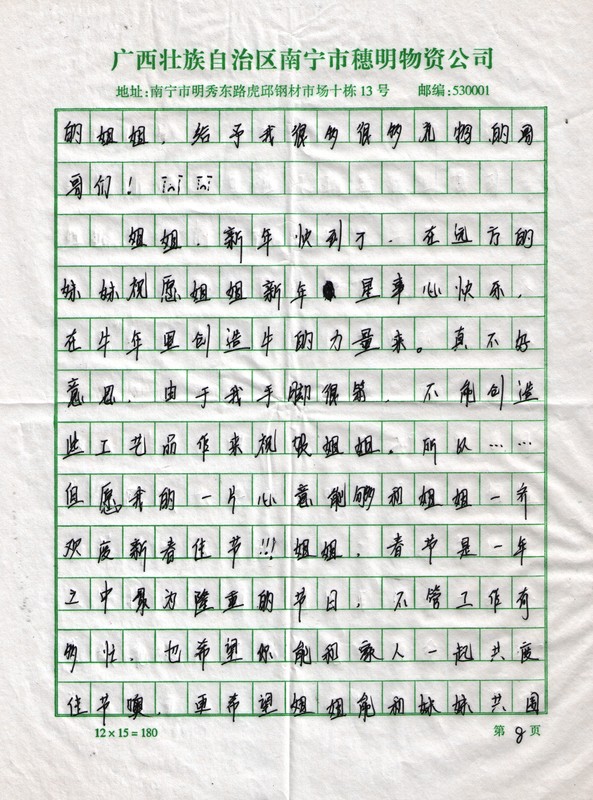 广西壮族自治区南宁市穗明物资公司
地址:南宁市明秀东路虎邱钢材市场十栋13号 邮编:530001
的姐姐,给予我很多很多礼物的哥
哥们!
姐姐,新年快到了,在远方的
妹妹祝愿姐姐新年星事心快乐,
在牛年里创造牛的力量来。真不好
意思,由于我手脚很笨,不能创造
些工艺品作来祝贺姐姐。所以……
但愿我的一片心意能够和姐姐一齐
欢度新春佳节!!!姐姐,春节是一年
之中最为隆重的节日,不管工作有
多忙,也希望你能和家人一起共度
佳节噢,更希望姐姐能和妹妹共圆
12×15=180 第8页